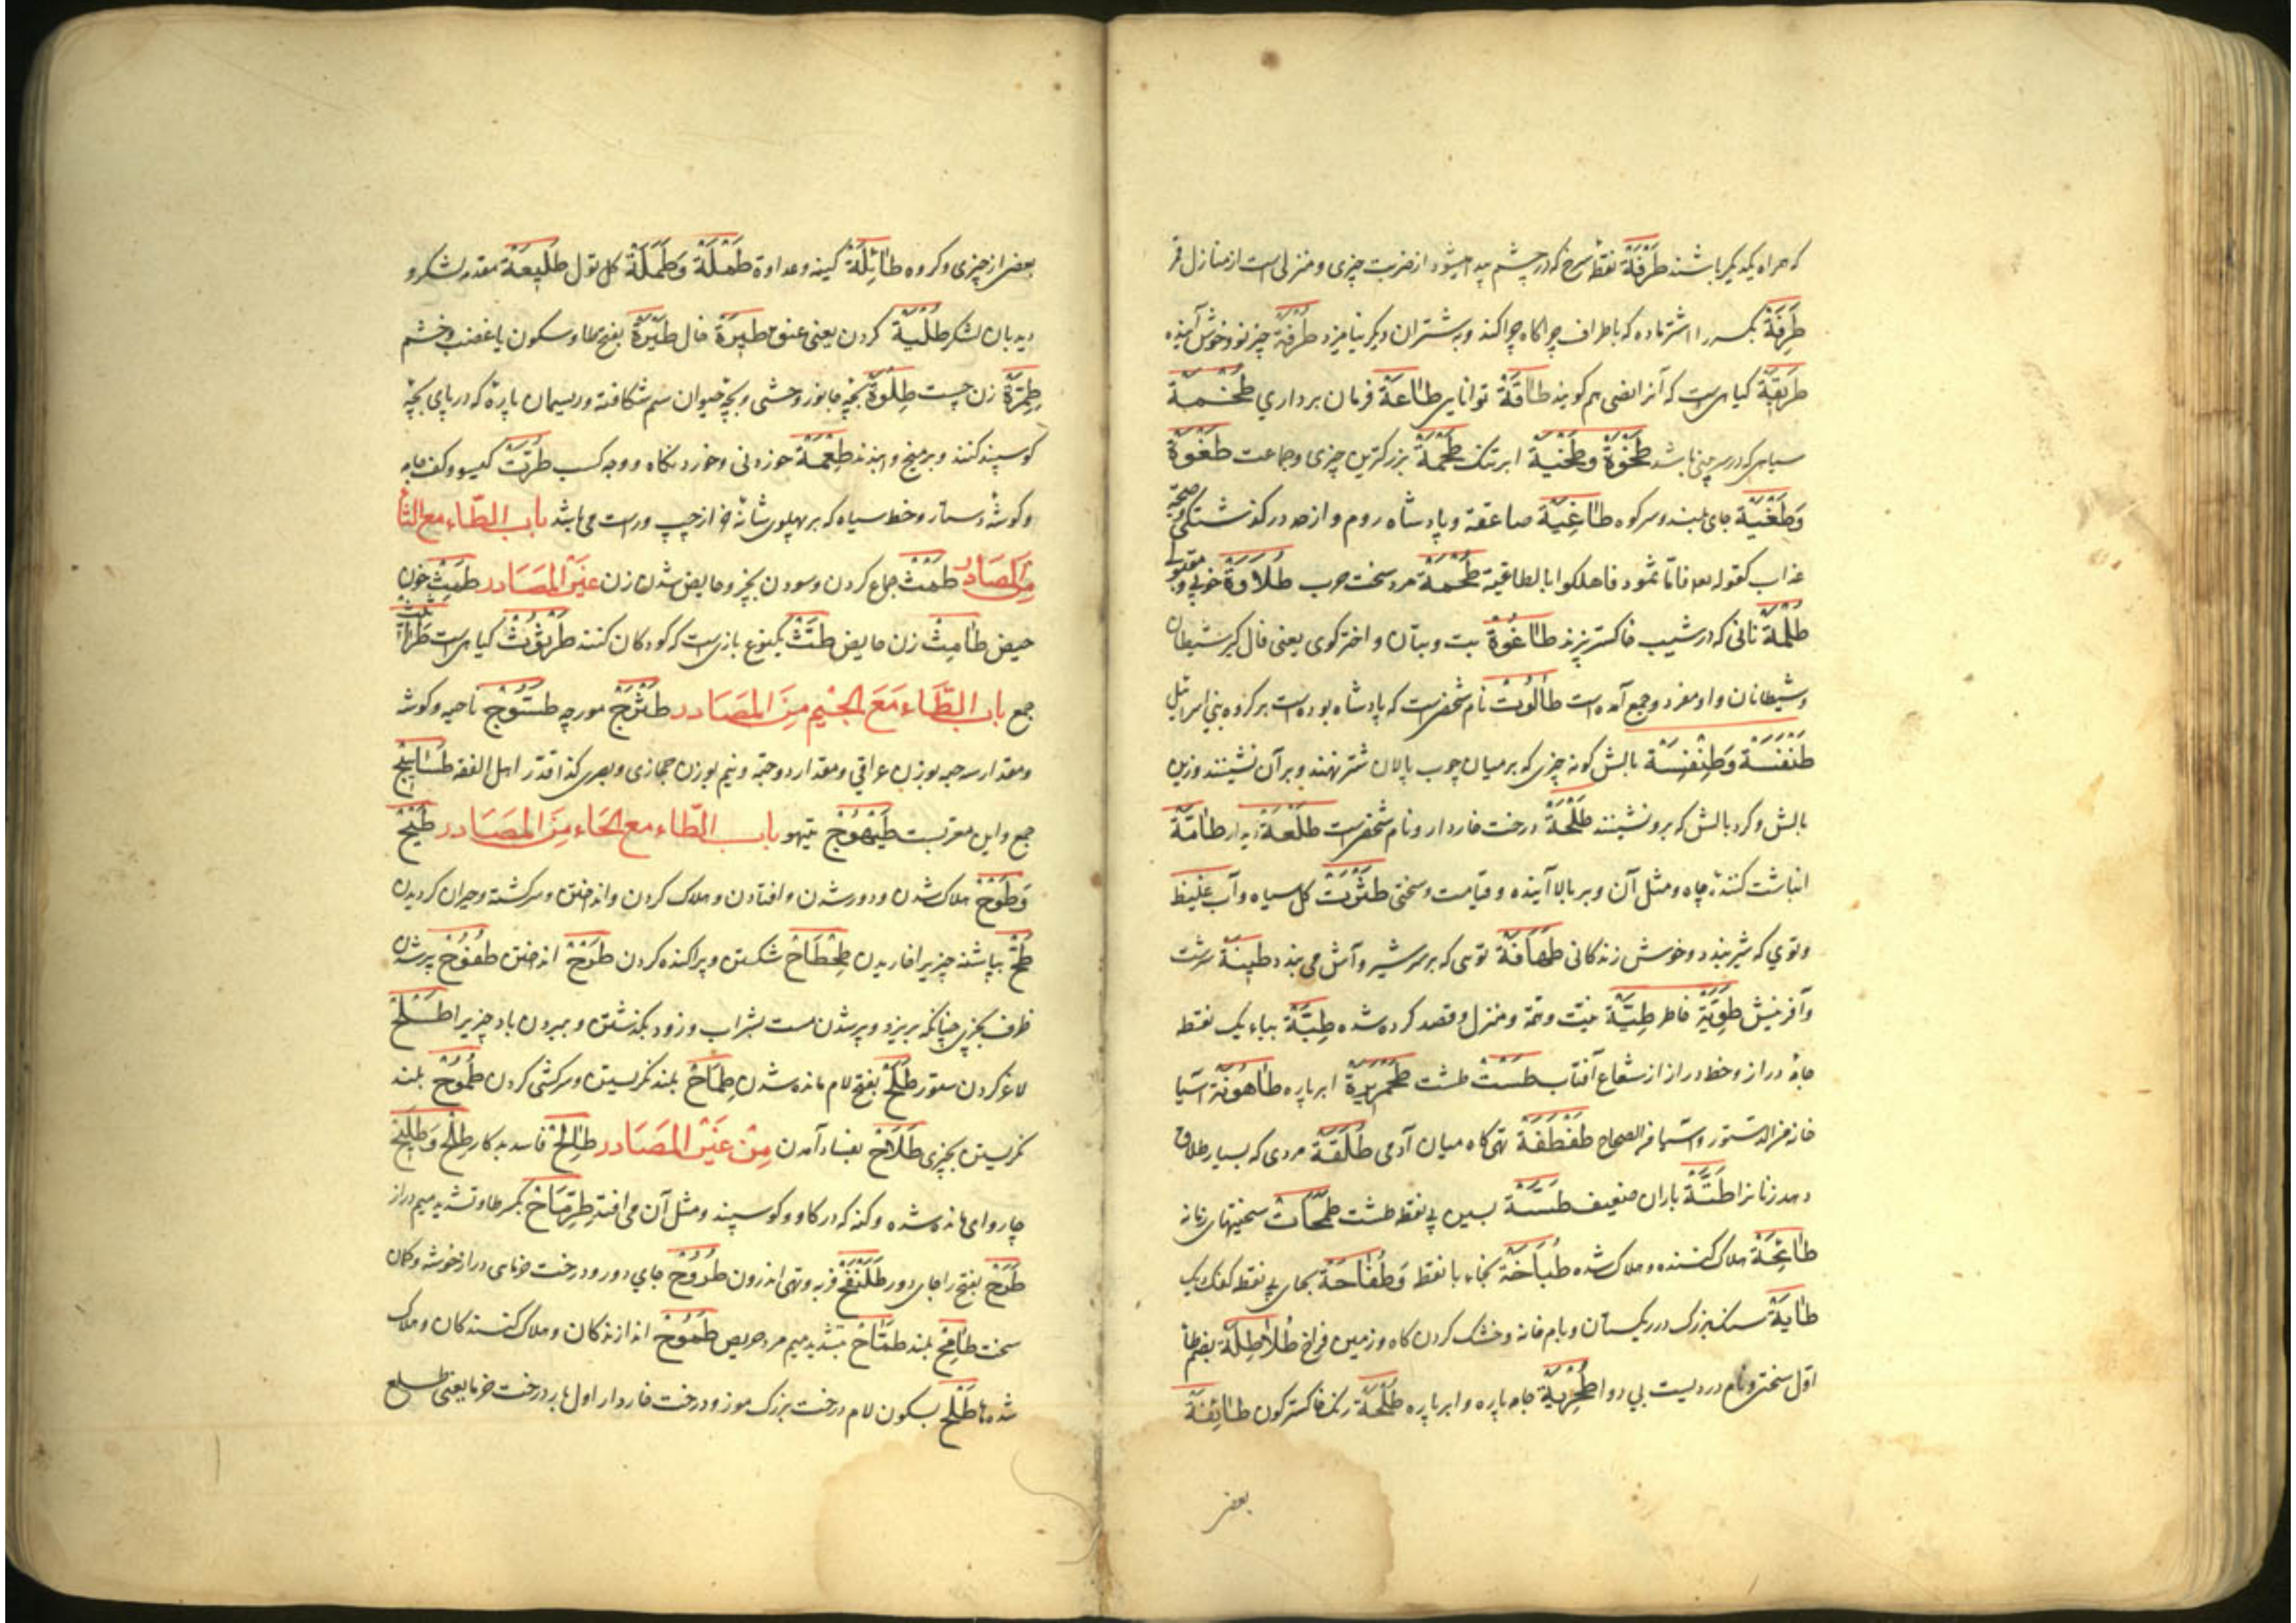 که همراه یکدیگر باشند طَرْفَةٌ نقطه سرخ که در چشم پیدا میشود از ضربت چیزی و منزلی است از منازل قر
طَرِفَةٌ بکسر را اشتر ماده که باطراف چراگاه چرا کند و بشتران دیگر نیامیزد طُرْفَةٌ چیز نو و خوش آینده
طَرِیقَةٌ کیاهی است که آنرا نصی هم کویند طَاقَةٌ توانایی طَاعَةٌ فرمان برداری طُخْمَةٌ
سیاهی که در سر بینی باشد طَخْوَةٌ وَ طَخْیَةٌ ابر تنک طَحْمَةٌ بزرکترین چیزی و جماعت طَغْوَةٌ
وَطَغْیَةٌ جای بلند و سر کوه طَاغِیَةٌ صاعقه و پادشاه روم و از حد در کذشتکی و صیحه
عذاب کقوله فامّا ثمود فاهلکوا بالطاغیة طُحَمَةٌ مرد سخت حرب طُلَاوَةٌ خوبی و
طُلْمَةٌ نانی که در شیب خاکستر پزند طَاغُوةٌ بت و بتان و اخترکوی یعنی فال کیر شیطان
و شیطانان و او مفرد و جمع آمده است طَالُوتُ نام شخصی است که پادشاه بوده است بر کروه بنی اسرائیل
طَنْفَسَةٌ وَطِنْفِسَةٌ بالش کونه چیزی که بر میان چوب پالان شتر نهند و بر آن نشینند و زین
بالش و کرد بالش که برو نشینند طَلْحَةٌ درخت خاردار و نام شخصی است طَلْعَةٌ دیدار طَامَّةٌ
انباشت کننده چاه و مثل آن و بر بالا آینده و قیامت و سختی کل سیاه و آب غلیظ
و توی که شیر بندد و خوش زندکانی طُهَافَةٌ توی که بر سر شیر و آش می بندد طِینَةٌ سرشت
و آفرینش طَوِیَّةٌ خاطر طِیَّةٌ نیّت و منزل و قصد کرده شده طِبَّةٌ بباء یک نقطه
جامه دراز و خط دراز از شعاع آفتاب طَسْتٌ طشت ابر پاره طَاحُونَةٌ آسیا
طَفْطَفَةٌ تهی کاه میان آدمی طُلَقَةٌ مردی که بسیار طلاق
دهد زنانرا طَشَّةٌ باران ضعیف طَسَّةٌ بسین بی نقطه طشت سختیهای زمانه
طَائِحَةٌ هلاک کننده و هلاک شده طُفَاخَةٌ بخاء با نقطه وَطُفَاحَةٌ بحای بی نقطه کفک دیک
طَایَةٌ سنک بزرک در ریکستان و بام خانه و خشک کردن کاه و زمین فراخ طُلَاطِلَةٌ بضم طا
اول سختی و نام دردیست بی دوا جامه پاره و ابر پاره طُلْحَةٌ رنک خاکسترکون طَائِفَةٌ
بعضی
بعضی از چیزی و کروه طَائِلَةٌ کینه و عداوة طَمْلَةٌ وَطَمَلَةٌ کل طَلِیعَةٌ مقدم لشکر و
دیدبان لشکر طُلْیَةٌ کردن یعنی عنق طِیَرَةٌ فال طَیْرَةٌ بفتح طا و سکون یا غضب و خشم
طِمِرَّةٌ زن چست طِلْوَةٌ بچه جانور وحشی و بچه حیوان سم شکافته و ریسمان پاره که در پای بچه
کوسپند کنند و بر میخ بندند طُعْمَةٌ خوردنی و خوردنکاه و وجه کسب طُرَّةٌ کیسو و کف جامه
و کوشه دستار و خط سیاه که بر پهلوی شانه خر از چپ و راست می باشد باب الطّاء مع الثا
مِنَ المصَادِر طَمْثٌ جماع کردن و سودن بچیز و حایض شدن زن غَیْر المَصَادر طَمْثٌ خون
حیض طَامِثٌ زن حایض طَثٌّ یکنوع بازیست که کودکان کنند طُرْثُوثٌ کیاهی است
جمع باب الطَّاء مَعَ الجیم مِنَ المصَادر طَثْرَجٌ مورچه طَسُّوجٌ ناحیه و کوشه
و مقدار سه حبه بوزن عراقی و مقدار دو حبّه و نیم بوزن حجازی و بصری کذا قدّر اهل الفقه طَسَاسِیجٌ
جمع و این معربست طَیْهُوجٌ تیهو باب الطّاء مع الحَاء مِنَ المصَادر طَیْحٌ
وَطَوْحٌ هلاک شدن و دور شدن و افتادن و هلاک کردن و انداختن و سرکشته و حیران کردیدن
طَحٌّ بپاشنه چیزی را خاریدن طِحْطَاحٌ شکستن و پراکنده کردن طَرْحٌ انداختن طُفُوحٌ پر شدن
ظرف بچیزی چنانکه بریزد و پر شدن مست بشراب و زود بکذشتن و بردن باد چیزی را طَلْحٌ
لاغر کردن ستور طَلَحٌ بفتح لام مانده شدن طِمَاحٌ بلند نکریستن و سرکشی کردن طُمُوحٌ بلند
نکریستن بچیزی طَلَاحٌ بفساد آمدن مِنْ غَیْر المَصَادر طَالِحٌ فاسد بدکار طِلْحٌ وَطَلِیحٌ
چاروای مانده شده و کنه که در کاو و کوسپند و مثل آن می افتد طِرِمَّاحٌ بکسر طا و تشدید میم دراز
طَرَحٌ بفتح را جای دور طَلَنْفَحٌ فربه و تهی اندرون طَرُوحٌ جای دور و درخت خرمای دراز خوشه و کمان
سخت طَامِحٌ بلند طَمَّاحٌ بتشدید میم مرد حریص اندازندکان و هلاک کنندکان و هلاک
شدها طَلْحٌ بسکون لام درخت بزرک موز و درخت خاردار اول بار درخت خرما یعنی طلع